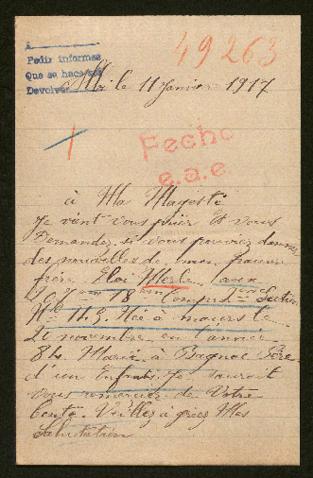 A
49263
Pedir informes
Que se haga
Devolver
le 11 Janvier 1917
Fecho
e.a.e
à Ma Magesté
Je vient vous prier Et vous
Demander si vous pouvriez donner
des nouvelles de mon pauvre
frère Eloi Merle
18 Section
Né à
20 novembre en l'année
84 Marié à Bagnac Père
d'un Enfant. Je
vous remercier de Votre
Bonté. Veillez à gréez Mes
Salutation